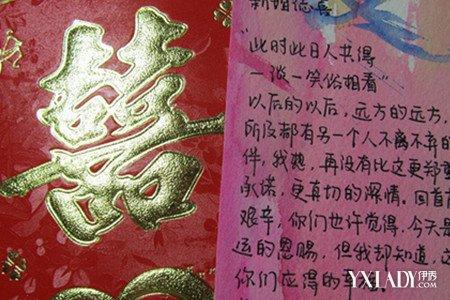 囍
新婚志喜
"此时此日人共得
一谈一笑俗相看"
以后的以后,远方的远方,
所及都有另一个人不离不弃的
件,我想,再没有比这更郑重
承诺,更真切的深情。回首
艰辛,你们也许觉得,今天是
运的恩赐,但我却知道,这
你们应得的幸福
YXLADY伊秀
.COM